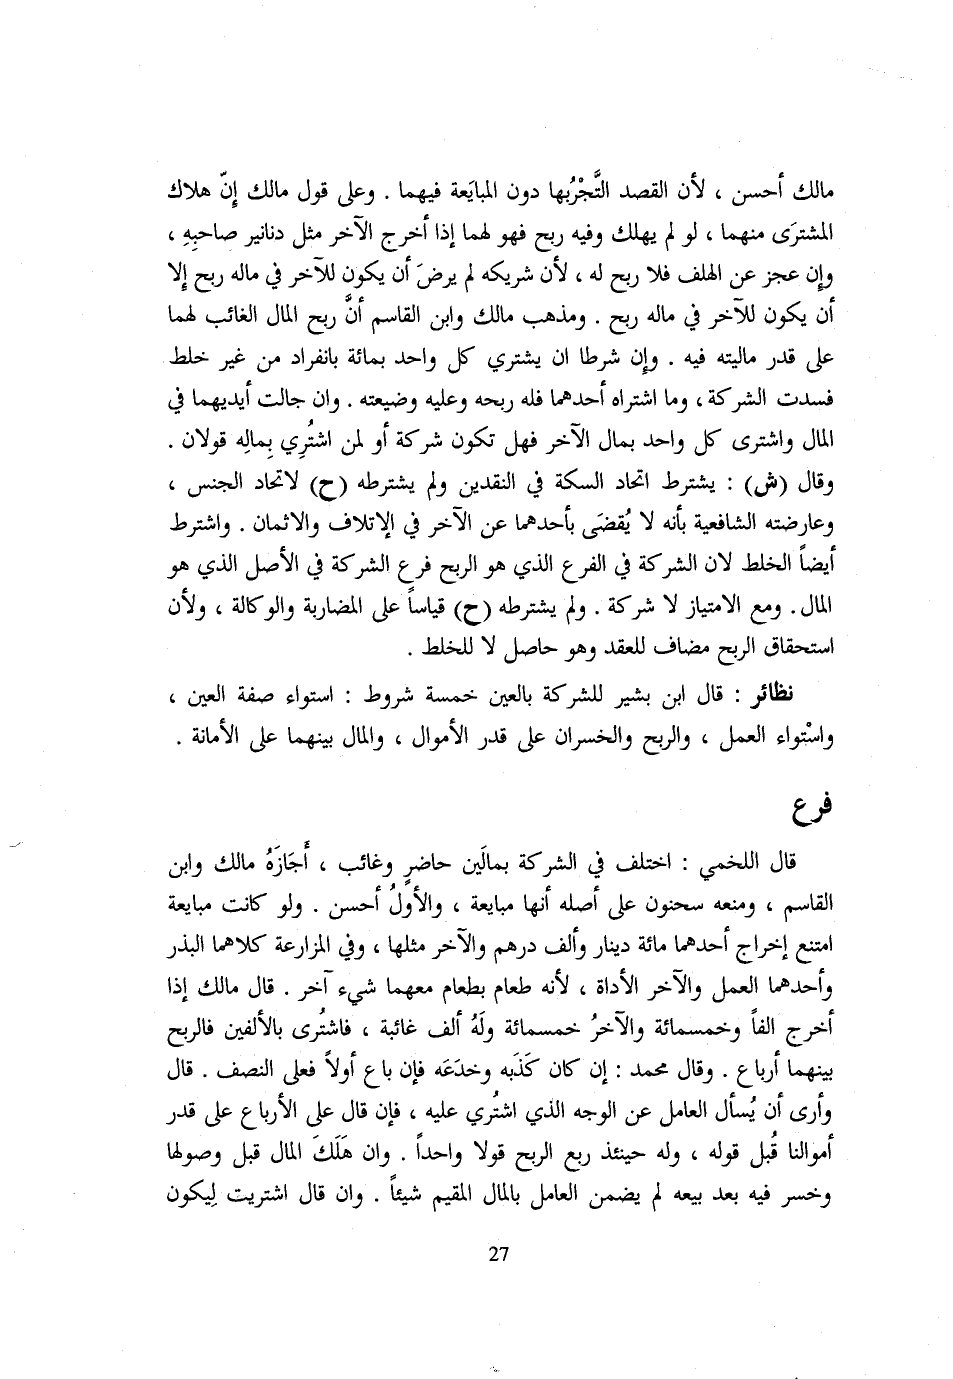 مالك أحسن ، لأن القصد التَّجْرُبها دون المبايَعة فيهما . وعلى قول مالك إِنّ هلاك
المشترَى منهما ، لو لم يهلك وفيه ربح فهو لهما إذا أخرج الآخر مثل دنانير صاحبِهِ ،
وإن عجز عن الهلف فلا ربح له ، لأن شريكه لم يرضَ أن يكون للآخر في ماله ربح إلا
أن يكون للآخر في ماله ربح . ومذهب مالك وابن القاسم أنَّ ربح المال الغائب لهما
على قدر ماليته فيه . وإن شرطا ان يشتري كل واحد بمائة بانفراد من غير خلط
فسدت الشركة ، وما اشتراه أحدهما فله ربحه وعليه وضيعته . وان جالت أيديهما في
المال واشترى كل واحد بمال الآخر فهل تكون شركة أو لمن اشتُرِي بِمالِه قولان .
وقال (ش) : يشترط اتحاد السكة في النقدين ولم يشترطه (ح) لاتحاد الجنس ،
وعارضته الشافعية بأنه لا يُقضَى بأحدهما عن الآخر في الإتلاف والاثمان . واشترط
أيضاً الخلط لان الشركة في الفرع الذي هو الربح فرع الشركة في الأصل الذي هو
المال. ومع الامتياز لا شركة . ولم يشترطه (ح) قياساً على المضاربة والوكالة ، ولأن
استحقاق الربح مضاف للعقد وهو حاصل لا للخلط .
نظائر : قال ابن بشير للشركة بالعين خمسة شروط : استواء صفة العين ،
واسْتواء العمل ، والربح والخسران على قدر الأموال ، والمال بينهما على الأمانة .
فرع
قال اللخمي : اختلف في الشركة بمالَين حاضرٍ وغائب ، أَجَازَهُ مالك وابن
القاسم ، ومنعه سحنون على أصله أنها مبايعة ، والأولُ أحسن . ولو كانت مبايعة
امتنع إخراج أحدهما مائة دينار وألف درهم والآخر مثلها ، وفي المزارعة كلاهما البذر
وأحدهما العمل والآخر الأداة ، لأنه طعام بطعام معهما شيء آخر . قال مالك إذا
أخرج الفاً وخمسمائة والآخرُ خمسمائة ولَهُ ألف غائبة ، فاشتُرى بالألفين فالربح
بينهما أرباع . وقال محمد : إن كان كَذَبه وخدَعَه فإن باع أولاً فعلى النصف . قال
وأرى أن يُسأل العامل عن الوجه الذي اشتُري عليه ، فإن قال على الأرباع على قدر
أموالنا قُبل قوله ، وله حينئذ ربع الربح قولا واحداً . وان هَلَكَ المال قبل وصولها
وخسر فيه بعد بيعه لم يضمن العامل بالمال المقيم شيئاً . وان قال اشتريت لِيكون
27